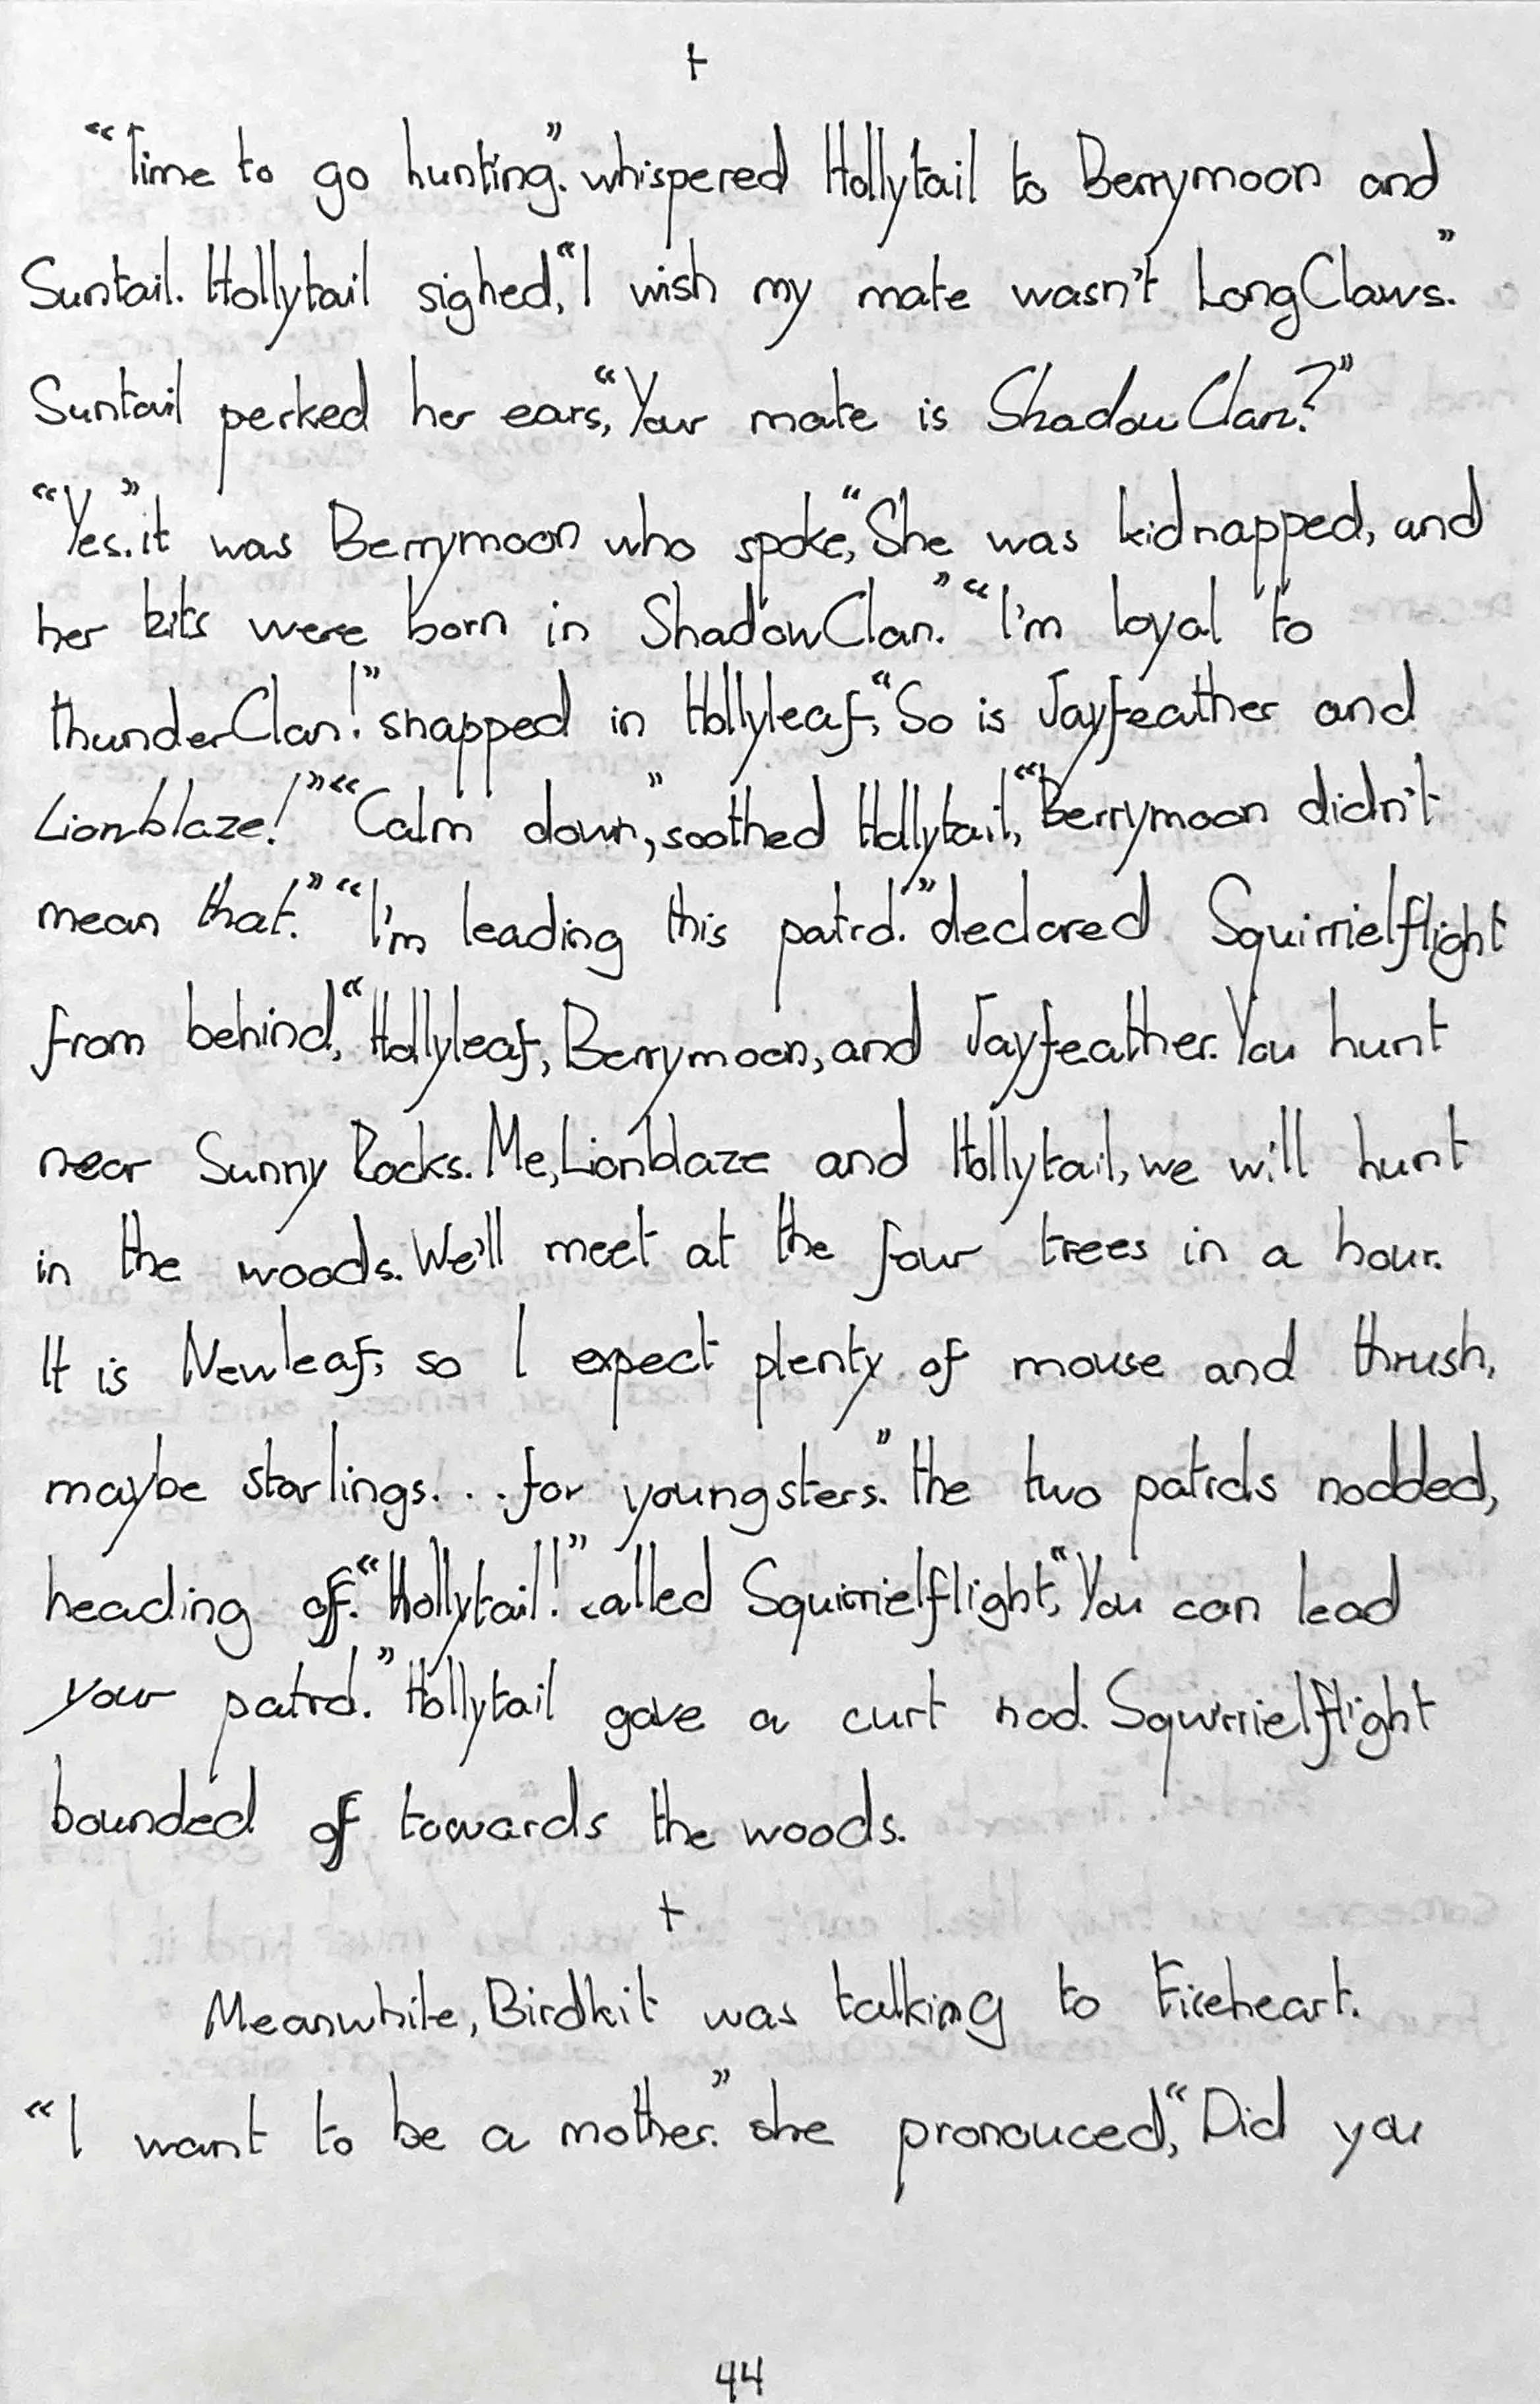 +
“Time to go hunting.” whispered Hollytail to Berrymoon and
Suntail. Hollytail sighed, “I wish my mate wasn't LongClaws.”
Suntail perked her ears, “Your mate is ShadowClan?”
“Yes.” it was Berrymoon who spoke, “She was kidnapped, and
her kits were born in ShadowClan.” “I'm loyal to
thunderClan!” snapped in Hollyleaf, “So is Jayfeather and
Lionblaze!” “Calm down,” soothed Hollytail, “Berrymoon didn't
mean that.” “I'm leading this patrol.” declared Squirrielflight
from behind, “Hollyleaf, Berrymoon, and Jayfeather. You hunt
near Sunny Rocks. Me, Lionblaze and Hollytail, we will hunt
in the woods. We'll meet at the four trees in a hour.
It is Newleaf, so I expect plenty of mouse and thrush,
maybe starlings... for youngsters.” the two patrols nodded,
heading off. “Hollytail!” called Squirrielflight, “You can lead
your patrol.” Hollytail gave a curt nod. Squirrielflight
bounded off towards the woods.
+
Meanwhile, Birdkit was talking to Fireheart.
“I want to be a mother.” she pronouced, “Did you
44